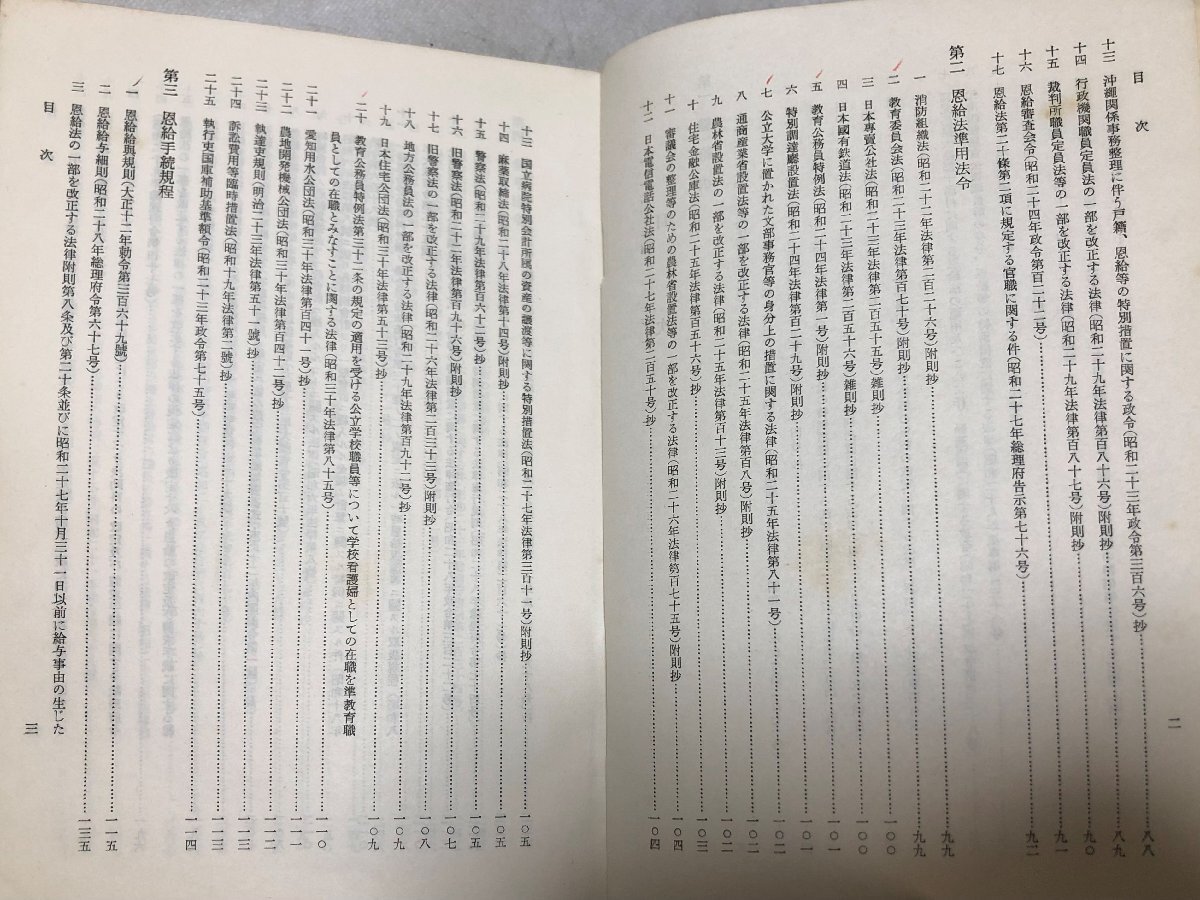 目次
十三　沖縄関係事務整理に伴う戸籍、恩給等の特別措置に関する政令（昭和二十三年政令第三百六号）抄……八八
十四　行政機関職員定員法の一部を改正する法律（昭和二十九年法律第百八十六号）附則抄……八九
十五　裁判所職員定員法等の一部を改正する法律（昭和二十九年法律第百八十七号）附則抄……九〇
十六　恩給審査会令（昭和二十四年政令第百二十二号）……九一
十七　恩給法第二十條第二項に規定する官職に関する件（昭和二十七年総理府告示第七十六号）……九二
第二　恩給法準用法令……九九
一　消防組織法（昭和二十二年法律第二百二十六号）附則抄……九九
二　教育委員会法（昭和二十三年法律第百七十号）附則抄……一〇〇
三　日本專賣公社法（昭和二十三年法律第二百五十五号）雑則抄……一〇〇
四　日本國有鉄道法（昭和二十三年法律第二百五十六号）雑則抄……一〇〇
五　教育公務員特例法（昭和二十四年法律第一号）附則抄……一〇一
六　特別調達廳設置法（昭和二十四年法律第百二十九号）附則抄……一〇一
七　公立大学に置かれた文部事務官等の身分上の措置に関する法律（昭和二十五年法律第八十一号）……一〇一
八　通商産業省設置法等の一部を改正する法律（昭和二十五年法律第百八号）附則抄……一〇二
九　農林省設置法の一部を改正する法律（昭和二十五年法律第百十三号）附則抄……一〇二
十　住宅金融公庫法（昭和二十五年法律第百五十六号）附則抄……一〇三
十一　審議会の整理等のための農林省設置法等の一部を改正する法律（昭和二十六年法律第百七十五号）附則抄……一〇四
十二　日本電信電話公社法（昭和二十七年法律第二百五十号）抄……一〇四
二
十三　国立病院特別会計所属の資産の譲渡等に関する特別措置法（昭和二十七年法律第三百十一号）附則抄……一〇五
十四　麻薬取締法（昭和二十八年法律第十四号）附則抄……一〇五
十五　警察法（昭和二十九年法律第百六十二号）抄……一〇五
十六　旧警察法（昭和二十二年法律第百九十六号）附則抄……一〇七
十七　旧警察法の一部を改正する法律（昭和二十六年法律第二百三十三号）附則抄……一〇八
十八　地方公務員法の一部を改正する法律（昭和二十九年法律第百九十二号）抄……一〇九
十九　日本住宅公団法（昭和三十年法律第五十三号）抄……一〇九
二十　教育公務員特例法第三十二条の規定の適用を受ける公立学校職員等について学校看護婦としての在職を準教育職
員としての在職とみなすことに関する法律（昭和三十年法律第八十五号）……一一〇
二十一　愛知用水公団法（昭和三十年法律第百四十一号）抄……一一一
二十二　農地開発機械公団法（昭和三十年法律第百四十二号）抄……一一二
二十三　執達吏規則（明治二十三年法律第五十一號）抄……一一三
二十四　訴訟費用等臨時措置法（昭和十九年法律第二號）抄……一一三
二十五　執行吏国庫補助基準額令（昭和二十三年政令第七十五号）……一一四
第三　恩給手続規程
一　恩給給與規則（大正十二年勅令第三百六十九號）……一一五
二　恩給給与細則（昭和二十八年総理府令第六十七号）……一一五
三　恩給法の一部を改正する法律附則第八条及び第二十条並びに昭和二十七年十月三十一日以前に給与事由の生じた……一三五
目次
三